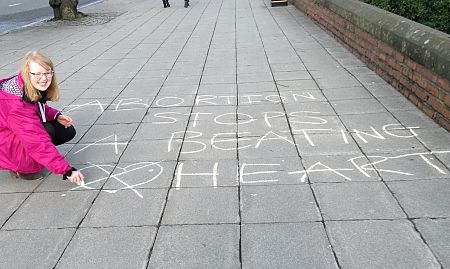 ABORTION
STOPS
A BEATING
HEART